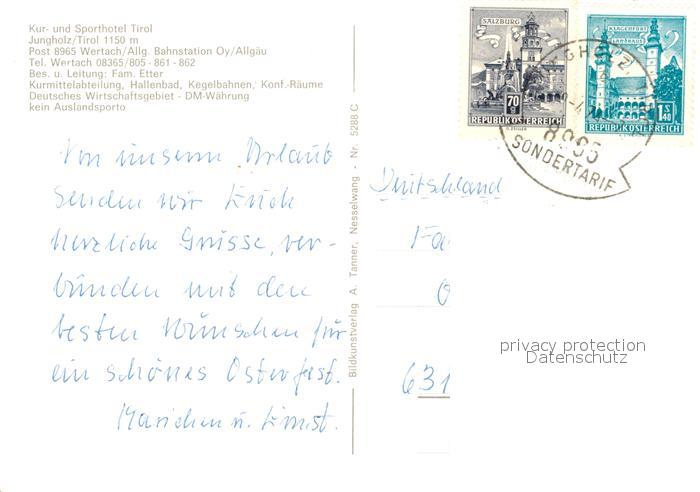 Kur- und Sporthotel Tirol
Jungholz/Tirol 1150 m
Post 8965 Wertach/Allg. Bahnstation Oy/Allgäu
Tel. Wertach 08365/805 - 861 - 862
Bes. u. Leitung: Fam. Etter
Kurmittelabteilung, Hallenbad, Kegelbahnen, Konf.-Räume
Deutsches Wirtschaftsgebiet - DM-Währung
kein Auslandsporto
Von unserem Urlaub
senden wir Euch
herzliche Grüsse, ver-
bunden mit den
besten Wünschen für
ein schönes Osterfest.
Mariechen u. Ernst.
Bildkunstverlag A. Tanner, Nesselwang - Nr. 5288 C
SALZBURG
70 g
REPUBLIK ÖSTERREICH
KLAGENFURT
LANDHAUS
1 S 40
REPUBLIK ÖSTERREICH
SONDERTARIF
Deutschland
Fa
631
privacy protection
Datenschutz